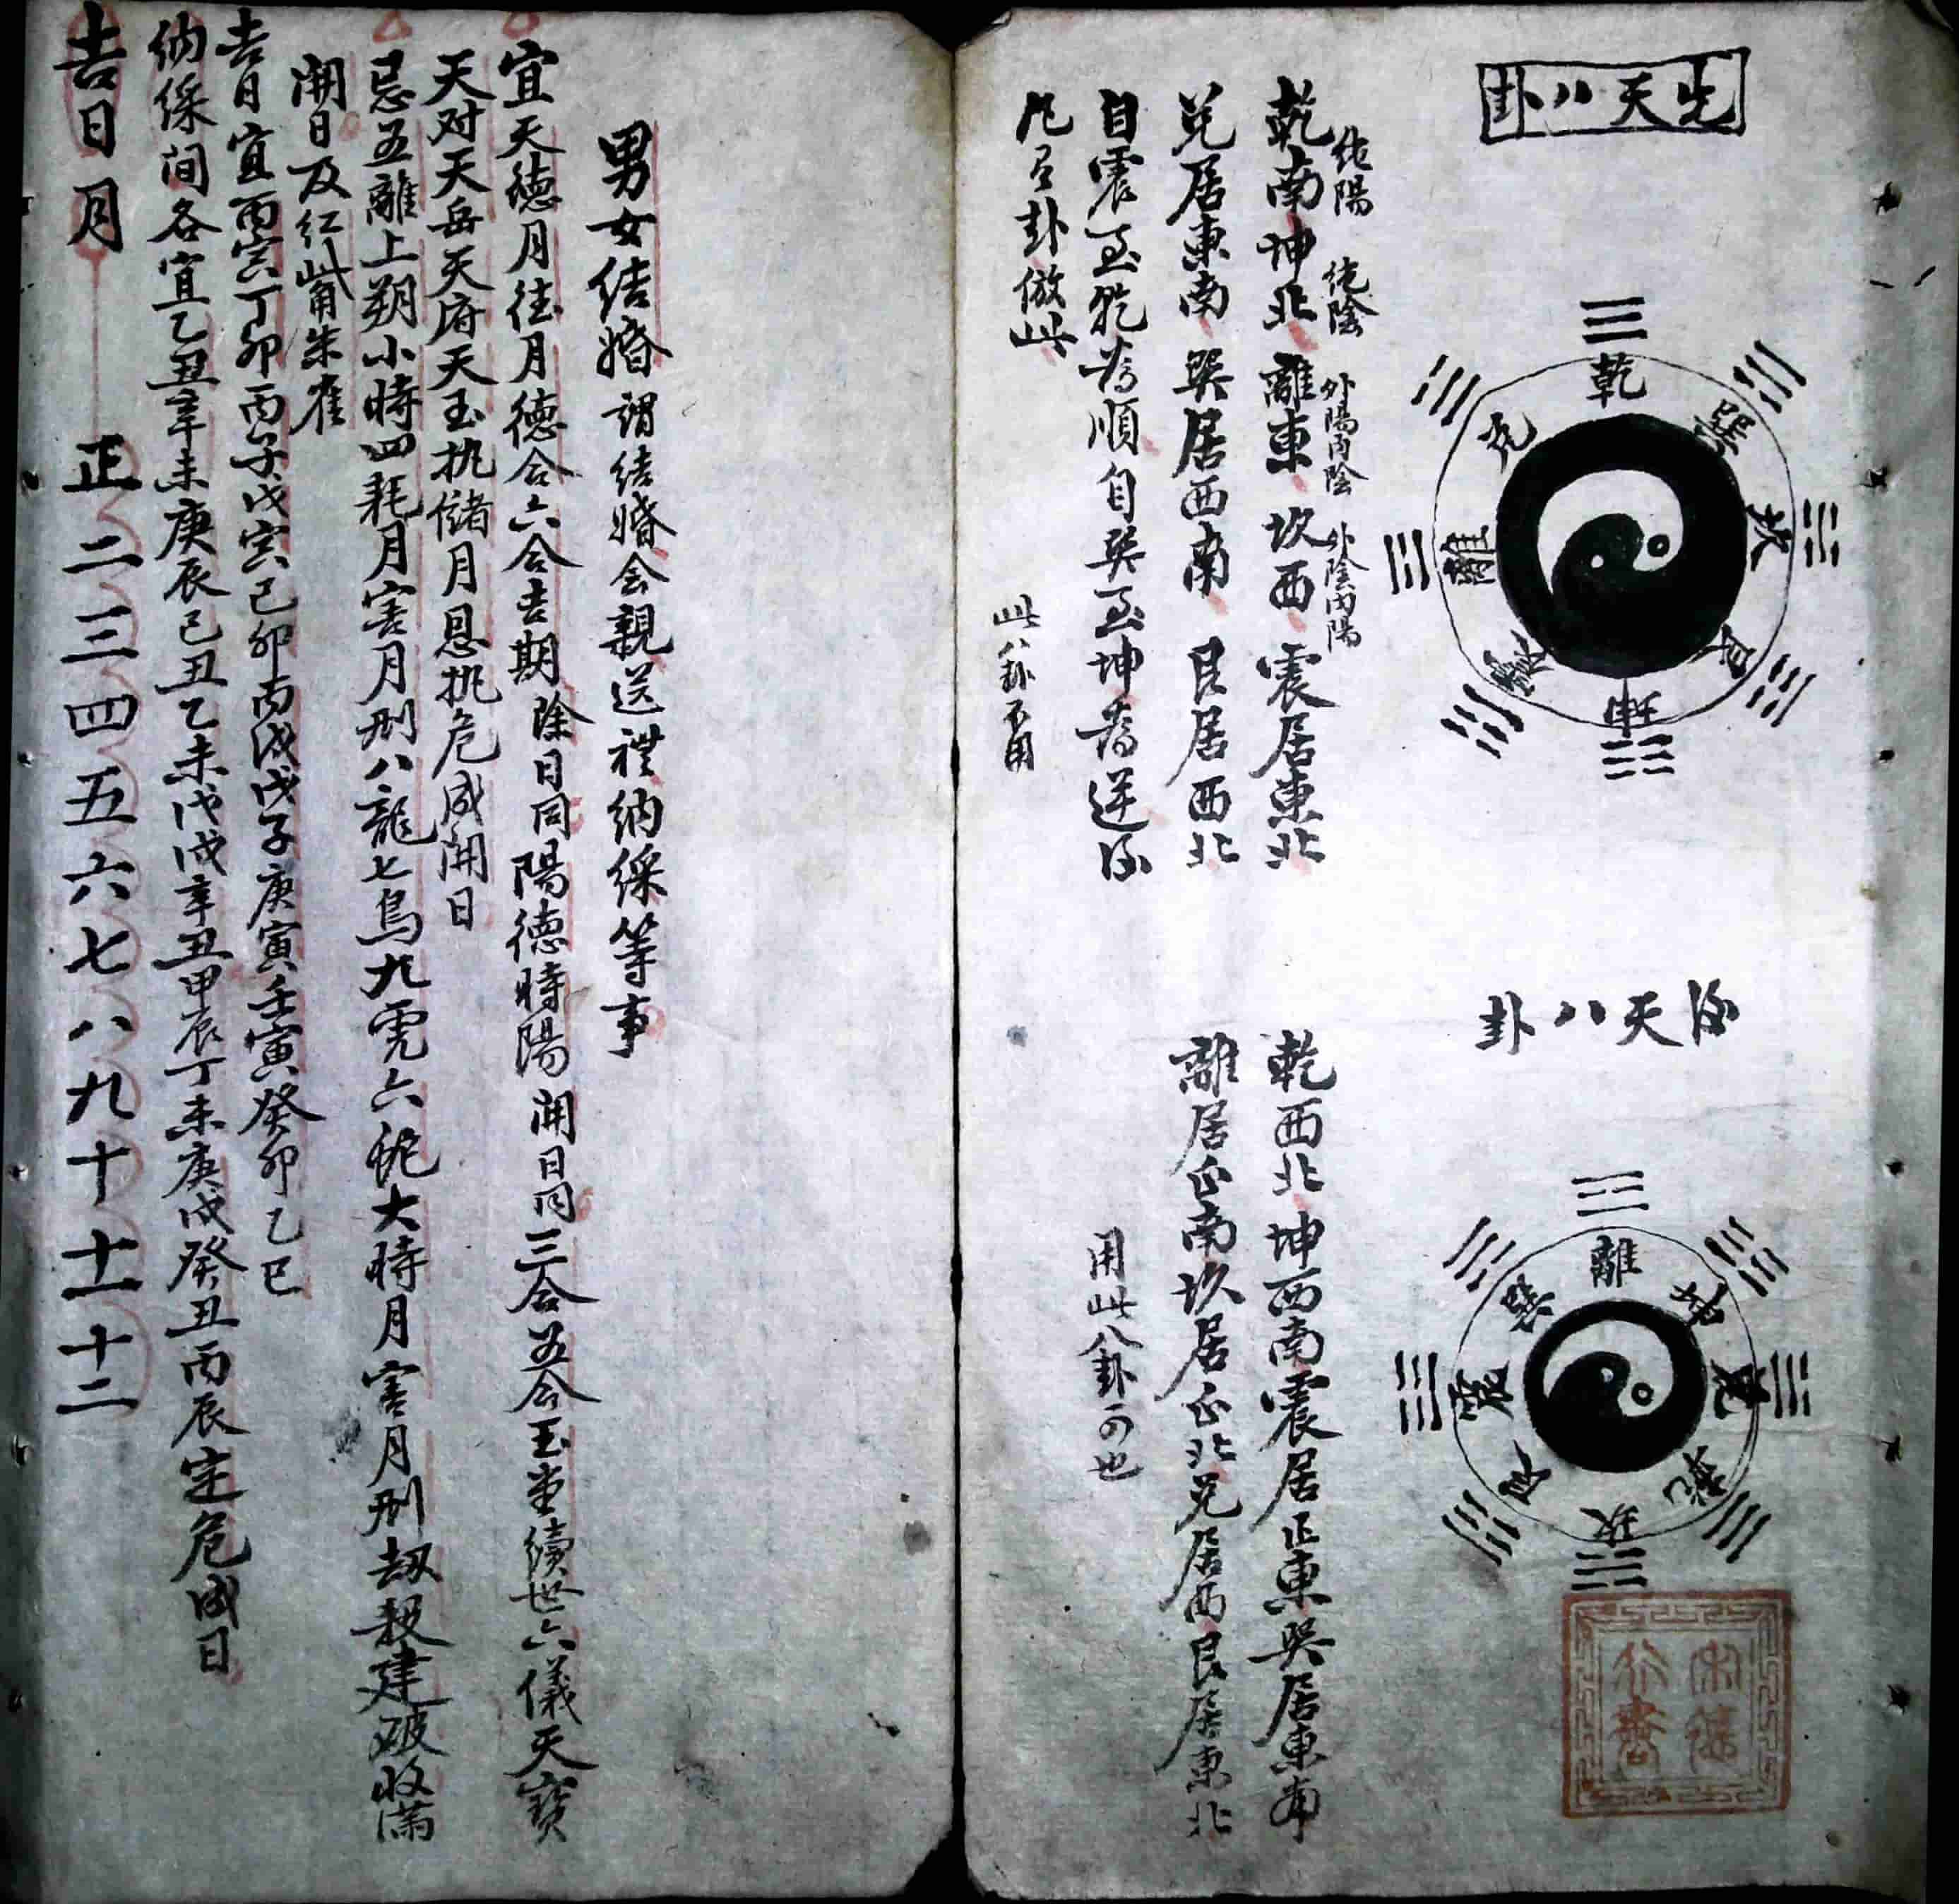 先天八卦
乾
巽
坎
艮
坤
震
離
兌
純陽 純陰 外陽內陰 外陰內陽
乾南坤北 離東 坎西 震居東北
兌居東南 巽居西南 艮居西北
自震至乾為順自巽至坤為逆后
凡言卦倣此
此八卦不用
后天八卦
離
坤
兌
乾
坎
艮
震
巽
乾西北 坤西南震居正東巽居東南
離居正南坎居正北兌居西艮居東北
用此八卦可也
男女结婚 謂结婚会親送禮纳綵等事
宜天德月德月德合六合吉期 除日同 陽德時陽 開日同 三合五合玉堂續世六儀天寶
天对天岳天府天玉执儲月恩执危成開日
忌五離上朔小時四耗月害月刑八龍七鳥九虎六蛇大時月害月刑刼殺建破收满
開日及红嘴朱雀
吉日宜丙寅丁卯丙子戊寅己卯丙戌戊子庚寅壬寅癸卯乙巳
纳綵间各宜乙丑辛未庚辰己丑乙未戊戌辛丑甲辰丁未庚戌癸丑丙辰定危成日
吉日月 正二三四五六七八九十十一十二